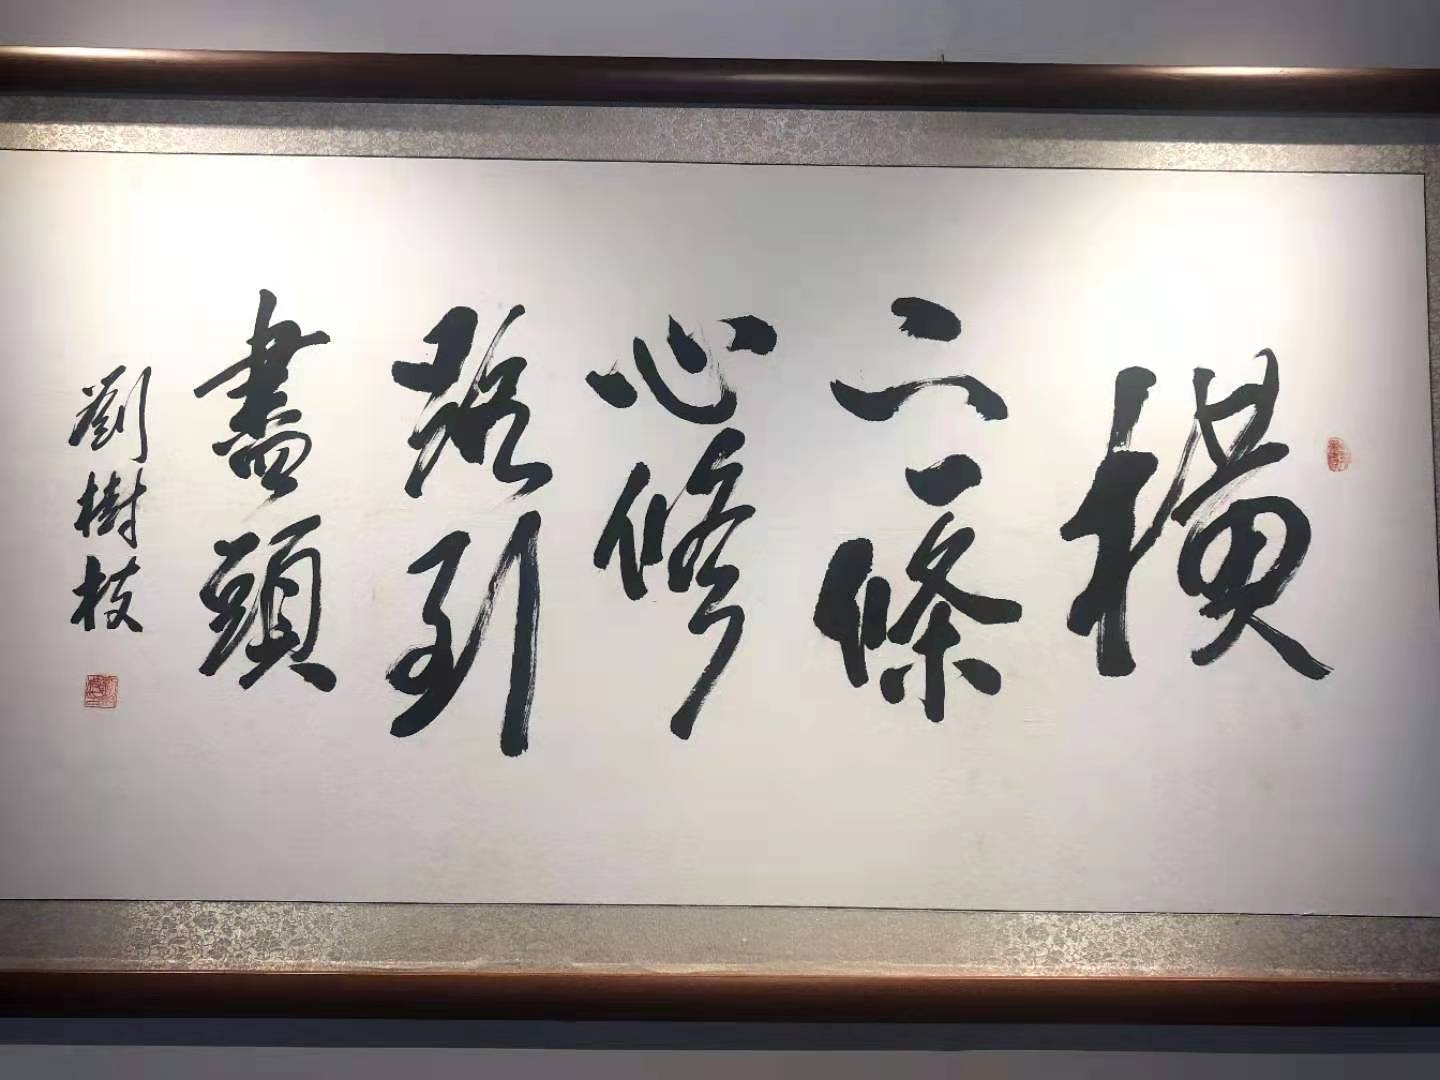 横
下一條
心修
路到
盡頭
劉樹枝